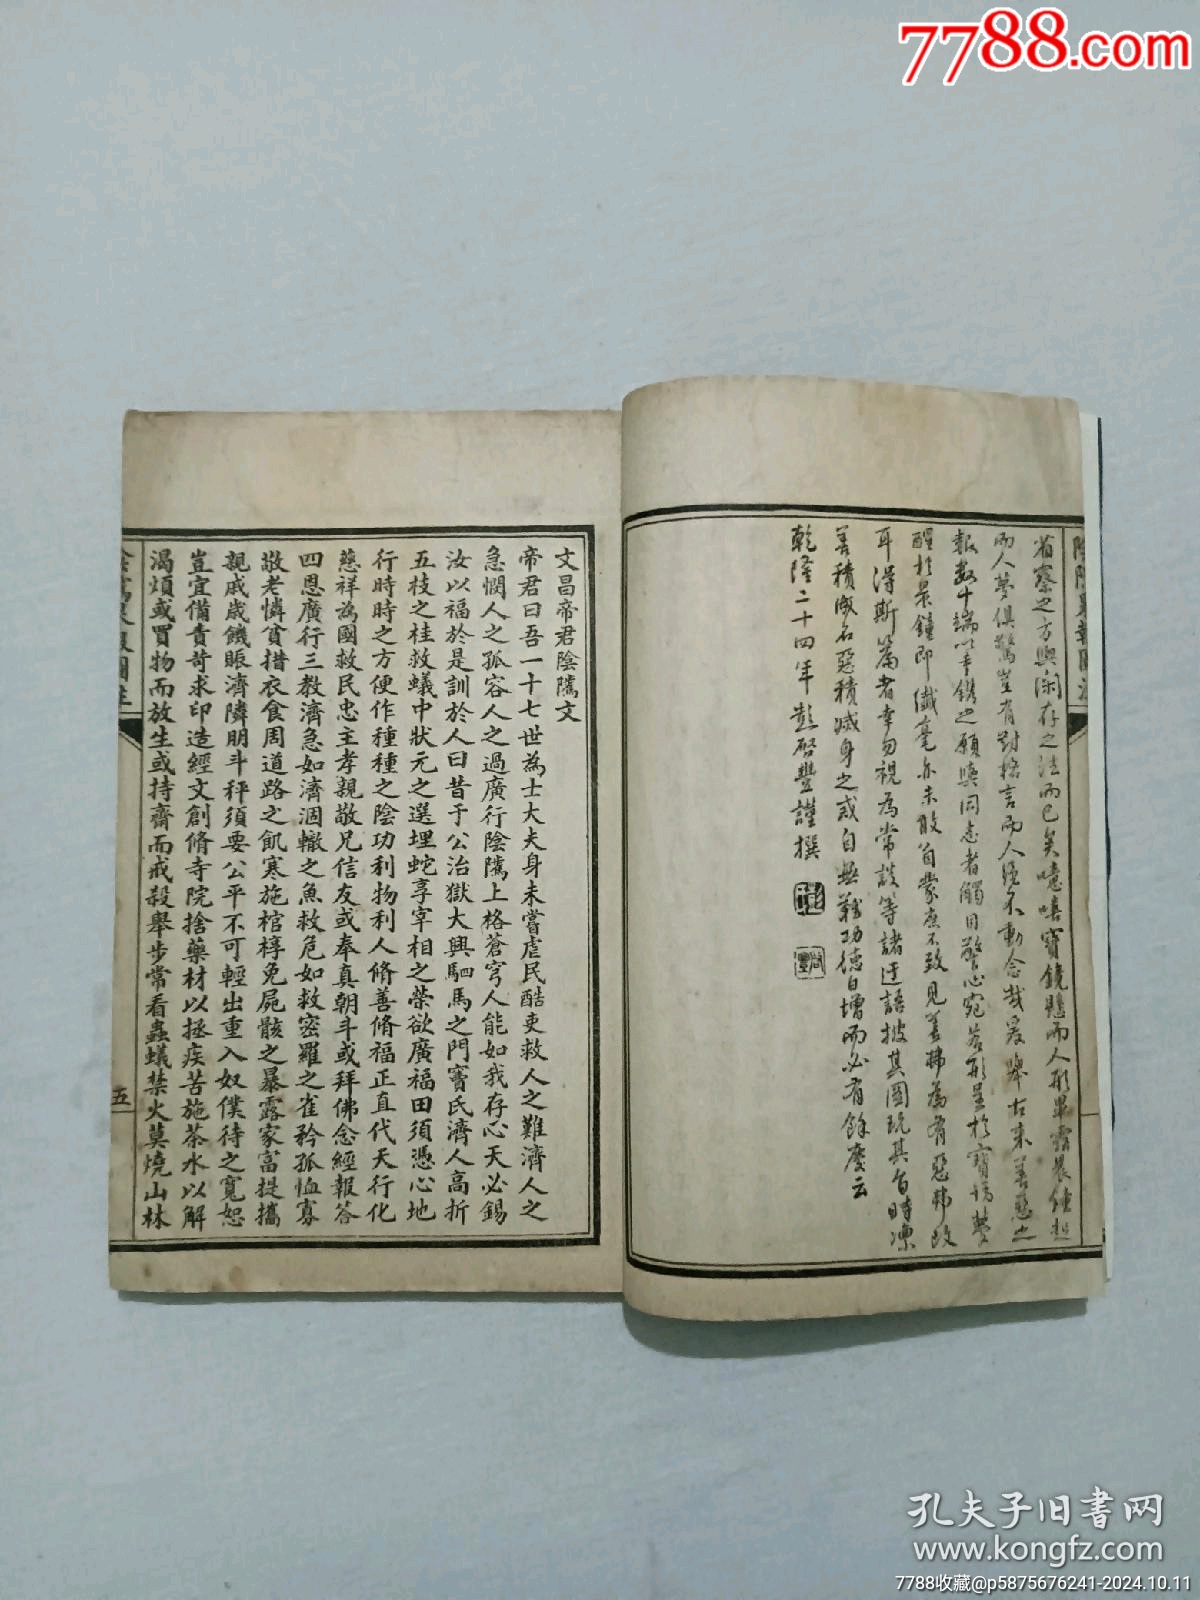 7788.com
陰隲果報圖注
省察之方與闲存之法而已矣噫嘻寶鏡懸而人形畢露晨鍾起
而人夢俱驚豈有對格言而人終不動念哉爰舉古来善惡之
報數十端以羊鐫之願與同志者觸目警心宛若形呈於寶鏡夢
醒於晨鐘即纖毫亦未敢自蒙庶不致見善弗為有惡弗改
耳得斯篇者幸勿視為常談等諸迂語披其圖玩其旨時凛
善積成名惡積滅身之戒自無難功德日增而必有餘慶云
乾隆二十四年彭啓豐謹撰
文昌帝君陰隲文
帝君曰吾一十七世為士大夫身未嘗虐民酷吏救人之難濟人之
急憫人之孤容人之過廣行陰隲上格蒼穹人能如我存心天必錫
汝以福於是訓於人曰昔于公治獄大興駟馬之門竇氏濟人高折
五枝之桂救蟻中狀元之選埋蛇享宰相之榮欲廣福田須憑心地
行時時之方便作種種之陰功利物利人脩善脩福正直代天行化
慈祥為國救民忠主孝親敬兄信友或奉真朝斗或拜佛念經報答
四恩廣行三教濟急如濟涸轍之魚救危如救密羅之雀矜孤恤寡
敬老憐貧措衣食周道路之飢寒施棺椁免屍骸之暴露家富提攜
親戚歲饑賑濟隣朋斗秤須要公平不可輕出重入奴僕待之寬恕
豈宜備責苛求印造經文創脩寺院捨藥材以拯疾苦施茶水以解
渴煩或買物而放生或持齋而戒殺舉步常看蟲蟻禁火莫燒山林
陰隲果報圖注
五
孔夫子旧书网
www.kongfz.com
7788收藏@p5875676241-2024.10.11